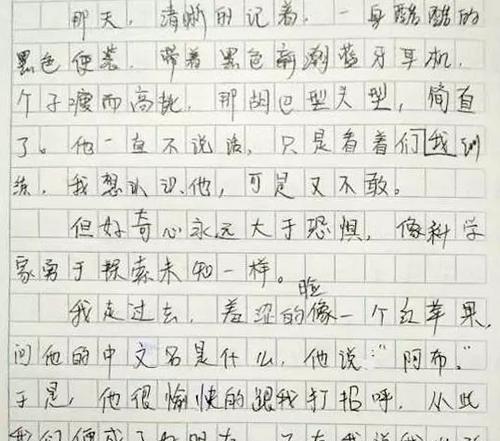 那天，清晰的记着，一身酷酷的
黑色便装，带着黑色新潮蓝牙耳机，
个子瘦而高挑，那胡巴型头型，简直
了。他一直不说话，只是看着们我训
练，我想认识他，可是又不敢。
但好奇心永远大于恐惧，像科学
家勇于探索未知一样。
我走过去，羞涩的脸像一个红苹果，
问他的中文名是什么，他说：“阿布。”
于是，他很愉快的跟我打招呼，从此
我们便成了好朋友，